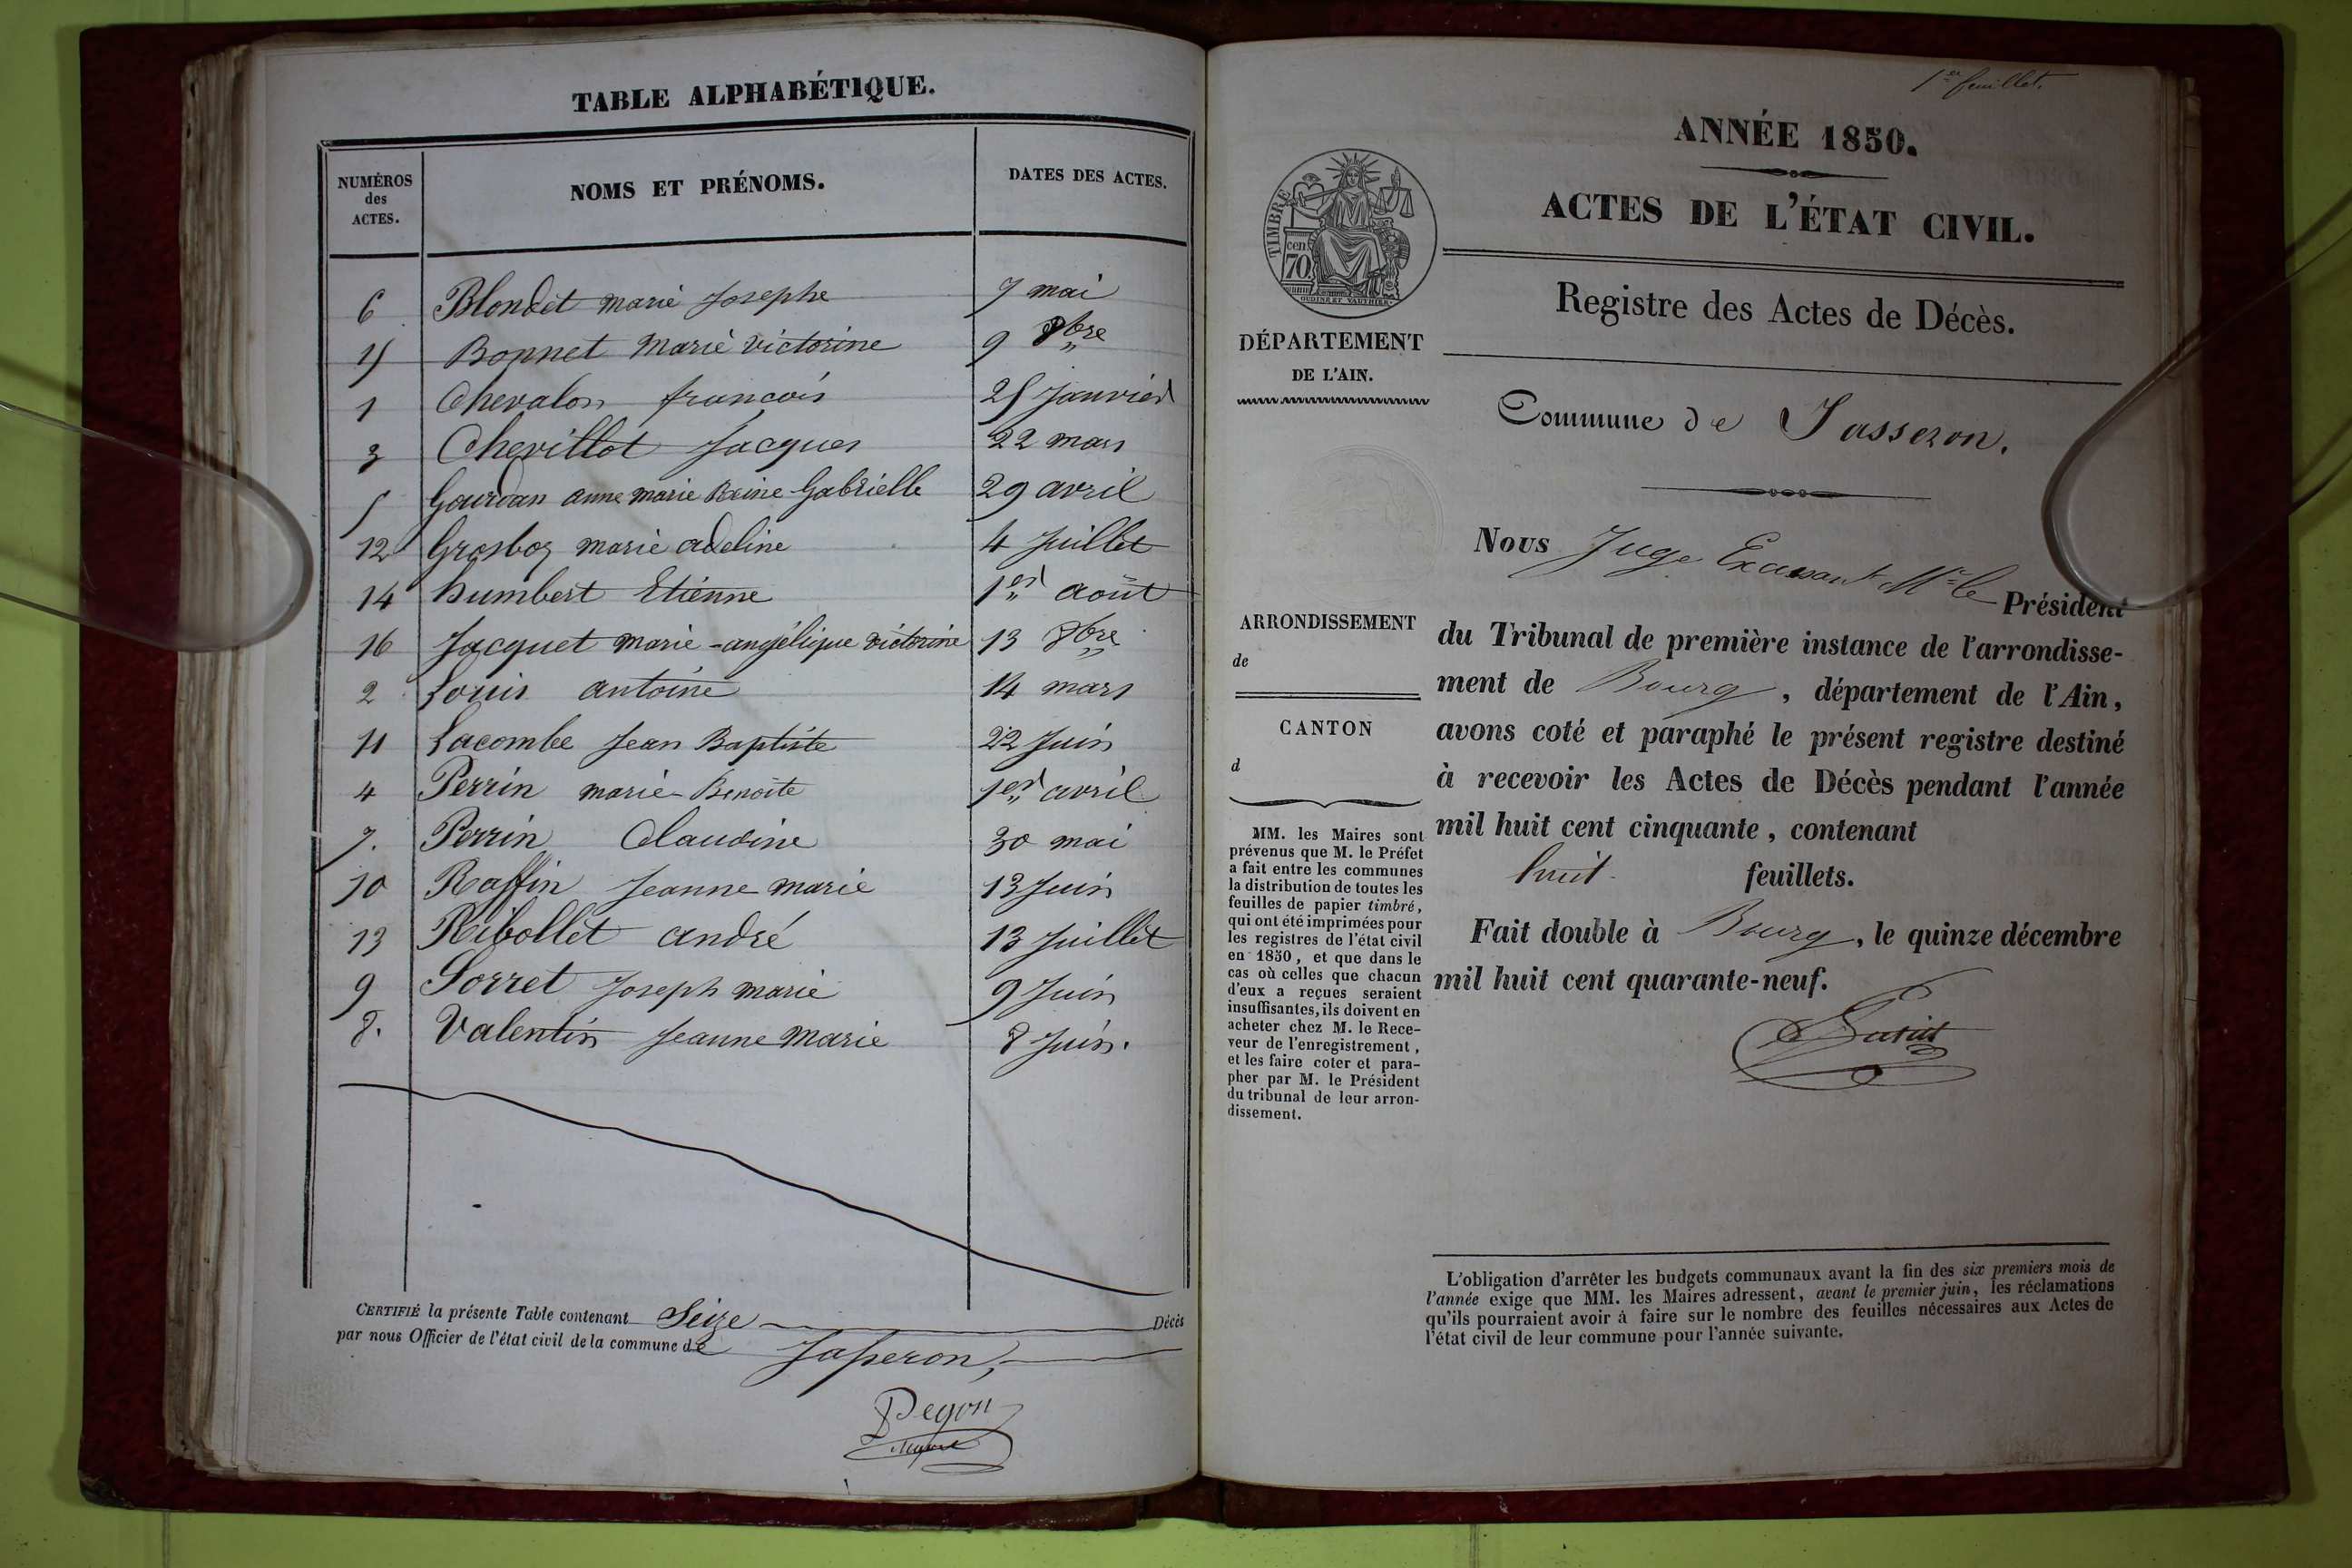 TABLE ALPHABÉTIQUE.
NUMÉROS des ACTES. NOMS ET PRÉNOMS. DATES DES ACTES.
6 Blondet marie Josephe 7 mai
15 Bonnet Marie victorine 9 8bre
1 Chevalon francois 25 Janvier
3 Chevillot Jacques 22 mars
5 Gourdan anne marie Reine Gabrielle 29 avril
12 Grosboz marie adeline 4 Juillet
14 humbert Etienne 1er août
16 Jacquet marie-angélique victorine 13 8bre
2 Louis antoine 14 mars
11 Lacombe Jean Baptiste 22 Juin
4 Perrin marie-Benoite 1er avril
7. Perrin Claudine 30 mai
10 Raffin Jeanne marie 13 Juin
13 Ribollet andré 13 Juillet
9 Sorret Joseph marie 9 Juin
8. Valentin Jeanne Marie 8 Juin.
CERTIFIÉ la présente Table contenant Seize Décès
par nous Officier de l'état civil de la commune de Jasseron,
Pegon
1er feuillet.
ANNÉE 1850.
ACTES DE L'ÉTAT CIVIL.
TIMBRE
cen
70
OUDINÉ ET VAUTHIER
Registre des Actes de Décès.
DÉPARTEMENT
DE L'AIN.
Commune de Jasseron.
ARRONDISSEMENT
de
CANTON
d
MM. les Maires sont
prévenus que M. le Préfet
a fait entre les communes
la distribution de toutes les
feuilles de papier timbré,
qui ont été imprimées pour
les registres de l'état civil
en 1850, et que dans le
cas où celles que chacun
d'eux a reçues seraient
insuffisantes, ils doivent en
acheter chez M. le Rece-
veur de l'enregistrement,
et les faire coter et para-
pher par M. le Président
du tribunal de leur arron-
dissement.
Nous Juge Mr le Président
du Tribunal de première instance de l'arrondisse-
ment de Bourg, département de l'Ain,
avons coté et paraphé le présent registre destiné
à recevoir les Actes de Décès pendant l'année
mil huit cent cinquante, contenant
huit feuillets.
Fait double à Bourg, le quinze décembre
mil huit cent quarante-neuf.
L'obligation d'arrêter les budgets communaux avant la fin des six premiers mois de
l'année exige que MM. les Maires adressent, avant le premier juin, les réclamations
qu'ils pourraient avoir à faire sur le nombre des feuilles nécessaires aux Actes de
l'état civil de leur commune pour l'année suivante.